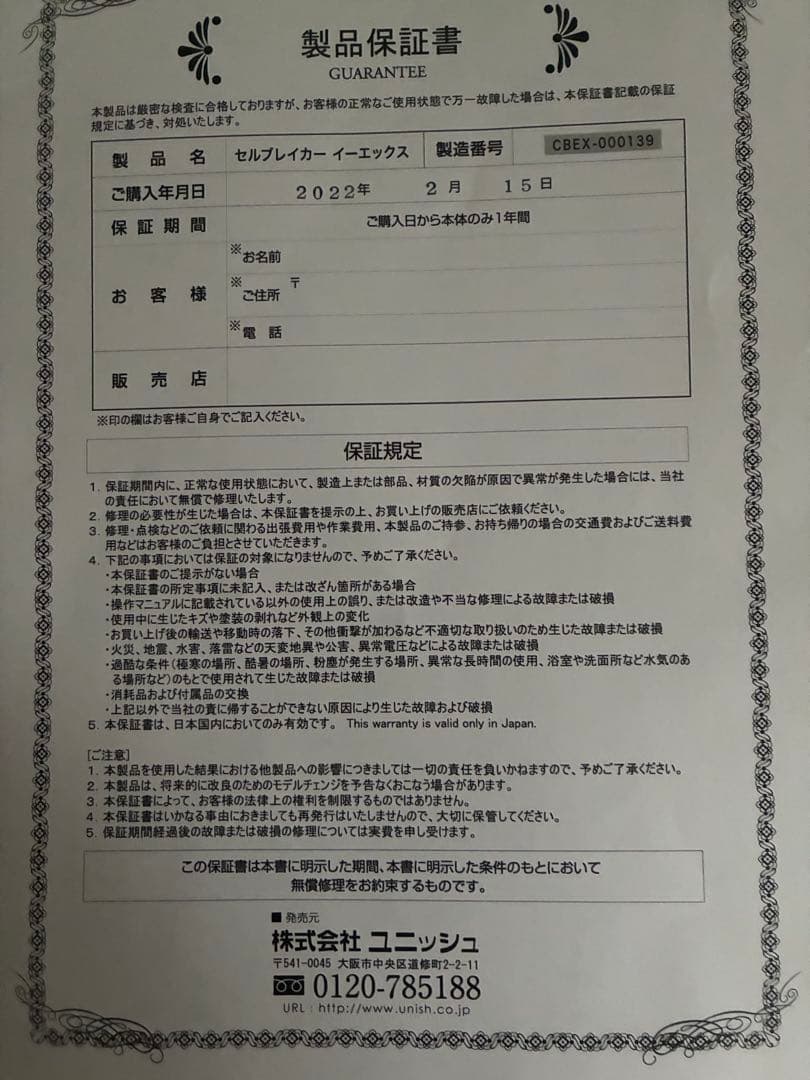 製品保証書
GUARANTEE
本製品は厳密な検査に合格しておりますが、お客様の正常なご使用状態で万一故障した場合は、本保証書記載の保証
規定に基づき、対処いたします。
製品名 セルブレイカー イーエックス 製造番号 CBEX-000139
ご購入年月日 2022年 2月 15日
保証期間 ご購入日から本体のみ1年間
※お名前
お客様 ※ご住所 〒
※電話
販売店
※印の欄はお客様ご自身でご記入ください。
保証規定
1. 保証期間内に、正常な使用状態において、製造上または部品、材質の欠陥が原因で異常が発生した場合には、当社
の責任において無償で修理いたします。
2. 修理の必要性が生じた場合は、本保証書を提示の上、お買い上げの販売店にご依頼ください。
3. 修理・点検などのご依頼に関わる出張費用や作業費用、本製品のご持参、お持ち帰りの場合の交通費およびご送料費
用などはお客様のご負担とさせていただきます。
4. 下記の事項においては保証の対象になりませんので、予めご了承ください。
・本保証書のご提示がない場合
・本保証書の所定事項に未記入、または改ざん箇所がある場合
・操作マニュアルに記載されている以外の使用上の誤り、または改造や不当な修理による故障または破損
・使用中に生じたキズや塗装の剥れなど外観上の変化
・お買い上げ後の輸送や移動時の落下、その他衝撃が加わるなど不適切な取り扱いのため生じた故障または破損
・火災、地震、水害、落雷などの天変地異や公害、異常電圧などによる故障または破損
・過酷な条件(極寒の場所、酷暑の場所、粉塵が発生する場所、異常な長時間の使用、浴室や洗面所など水気のあ
る場所など)のもとで使用されて生じた故障または破損
・消耗品および付属品の交換
・上記以外で当社の責に帰することができない原因により生じた故障および破損
5. 本保証書は、日本国内においてのみ有効です。 This warranty is valid only in Japan.
[ご注意]
1. 本製品を使用した結果における他製品への影響につきましては一切の責任を負いかねますので、予めご了承ください。
2. 本製品は、将来的に改良のためのモデルチェンジを予告なくおこなう場合があります。
3. 本保証書によって、お客様の法律上の権利を制限するものではありません。
4. 本保証書はいかなる事由におきましても再発行はいたしませんので、大切に保管してください。
5. 保証期間経過後の故障または破損の修理については実費を申し受けます。
この保証書は本書に明示した期間、本書に明示した条件のもとにおいて
無償修理をお約束するものです。
■ 発売元
株式会社 ユニッシュ
〒541-0045 大阪市中央区道修町2-2-11
0120-785188
URL : http://www.unish.co.jp